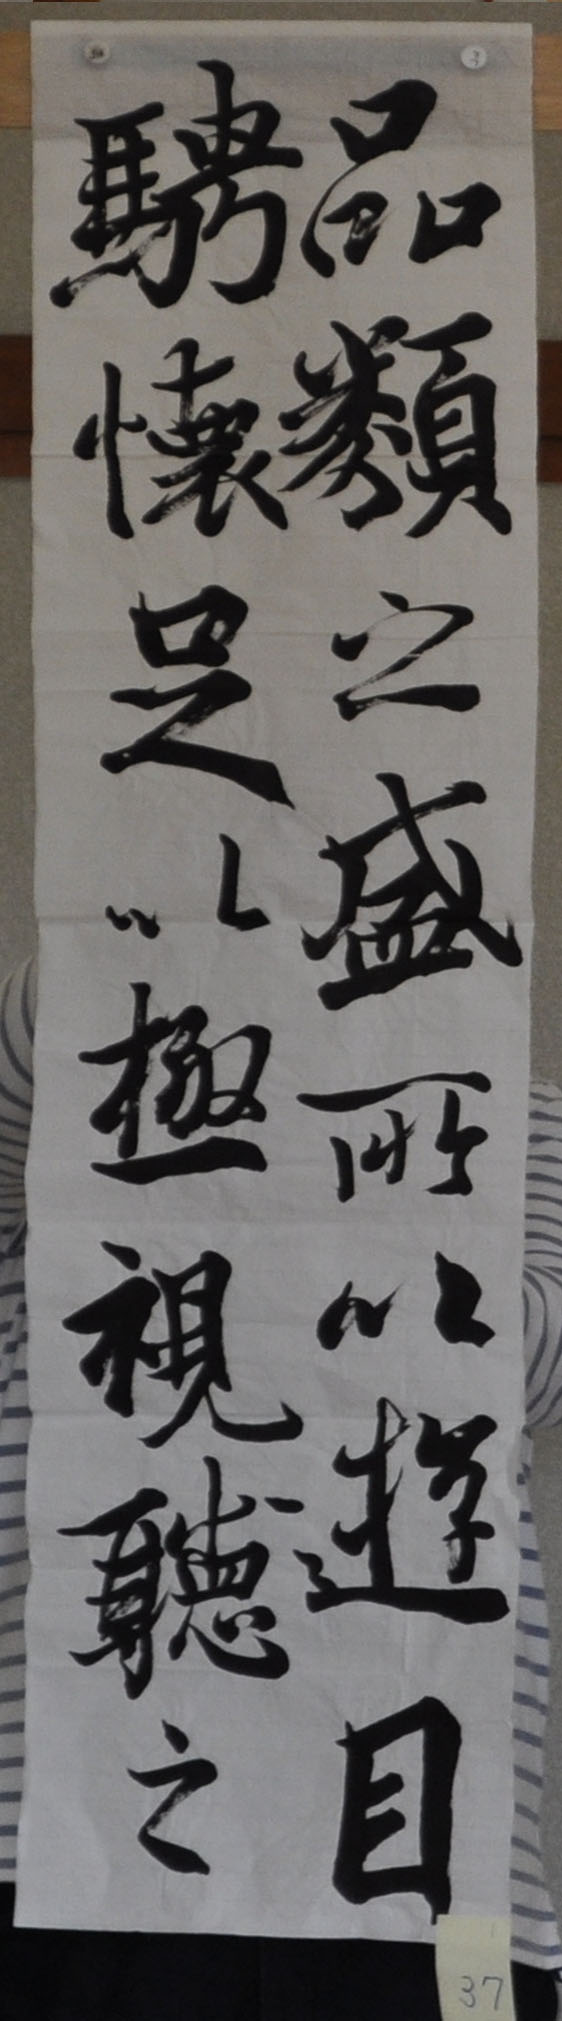 品類之盛所以遊目
騁懷足以極視聽之
37